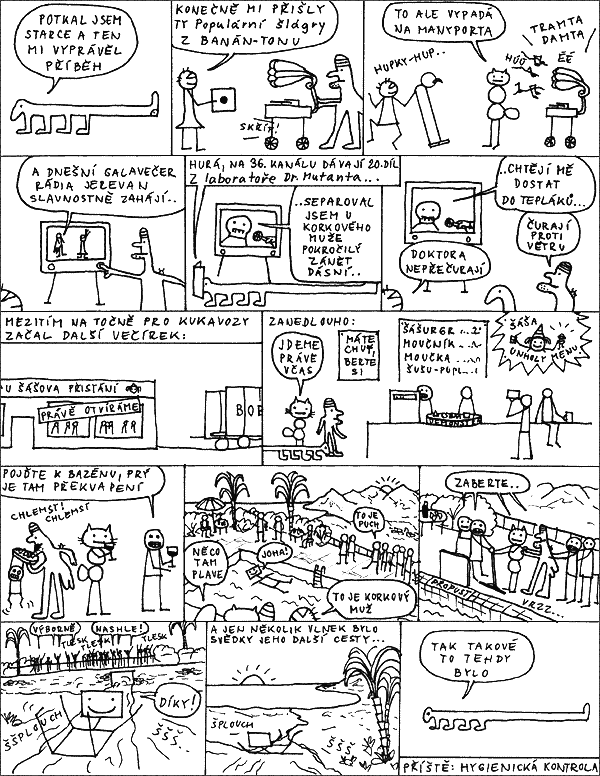 POTKAL JSEM
STARCE A TEN
MI VYPRÁVĚL
PŘÍBĚH
KONEČNĚ MI PŘIŠLY
TY Populární šlágry
Z BANÁN-TONU
SKŘÍP!
TO ALE VYPADÁ
NA MANYPORTA
HUPKY-HUP..
TRAMTA
DAMTA
HÚÚ
ÉÉ
A DNEŠNÍ GALAVEČER
RÁDIA JEREVAN
SLAVNOSTNĚ ZAHÁJÍ..
HURÁ, NA 36. KANÁLU DÁVAJÍ 20.DÍL
Z laboratoře Dr. Mutanta...
..SEPAROVAL
JSEM U
KORKOVÉHO
MUŽE
POKROČILÝ
ZÁNĚT
DÁSNÍ..
..CHTĚJÍ MĚ
DOSTAT
DO TEPLÁKŮ...
DOKTORA
NEPŘEČURAJÍ
ČURAJÍ
PROTI
VĚTRU
MEZITÍM NA TOČNĚ PRO KUKAVOZY
ZAČAL DALŠÍ VEČÍREK:
U ŠÁŠOVA PŘISTÁNÍ
PRÁVĚ OTVÍRÁME
BOB
ZANEDLOUHO:
JDEME
PRÁVĚ
VČAS
MÁTE
CHUŤ,
BERTE
SI
ŠÁŠURGR
MOUČNÍK
MOUČKA
ŠUŠU-PUPL..
ŠÁŠA
UNHOLY MENU
POJĎTE K BAZÉNU, PRÝ
JE TAM PŘEKVAPENÍ
CHLEMST!
CHLEMST
NĚCO
TAM
PLAVE
JOHA!
TO JE
PUCH
TO JE KORKOVÝ
MUŽ
ZABERTE..
PROPUSŤ
VRZZ...
VÝBORNĚ
NASHLE!
TLESK
TLESK
TLESK
DÍKY!
ŠŠPLOUCH
ŠŠŠ
A JEN NĚKOLIK VLNEK BYLO
SVĚDKY JEHO DALŠÍ CESTY...
ŠPLOUCH
ŠŠŠ
TAK TAKOVÉ
TO TEHDY
BYLO
PŘÍŠTĚ: HYGIENICKÁ KONTROLA